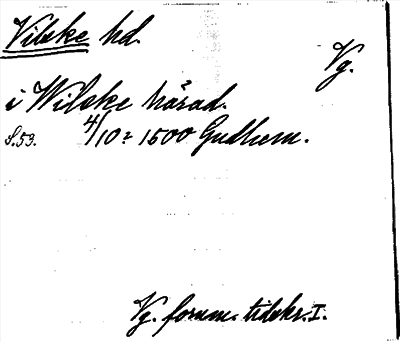 Vilske hd.
Vg.
i Wilske härad.
S. 53. 4/10 1500 Gudhem.
Vg. fornm. tidskr. I.